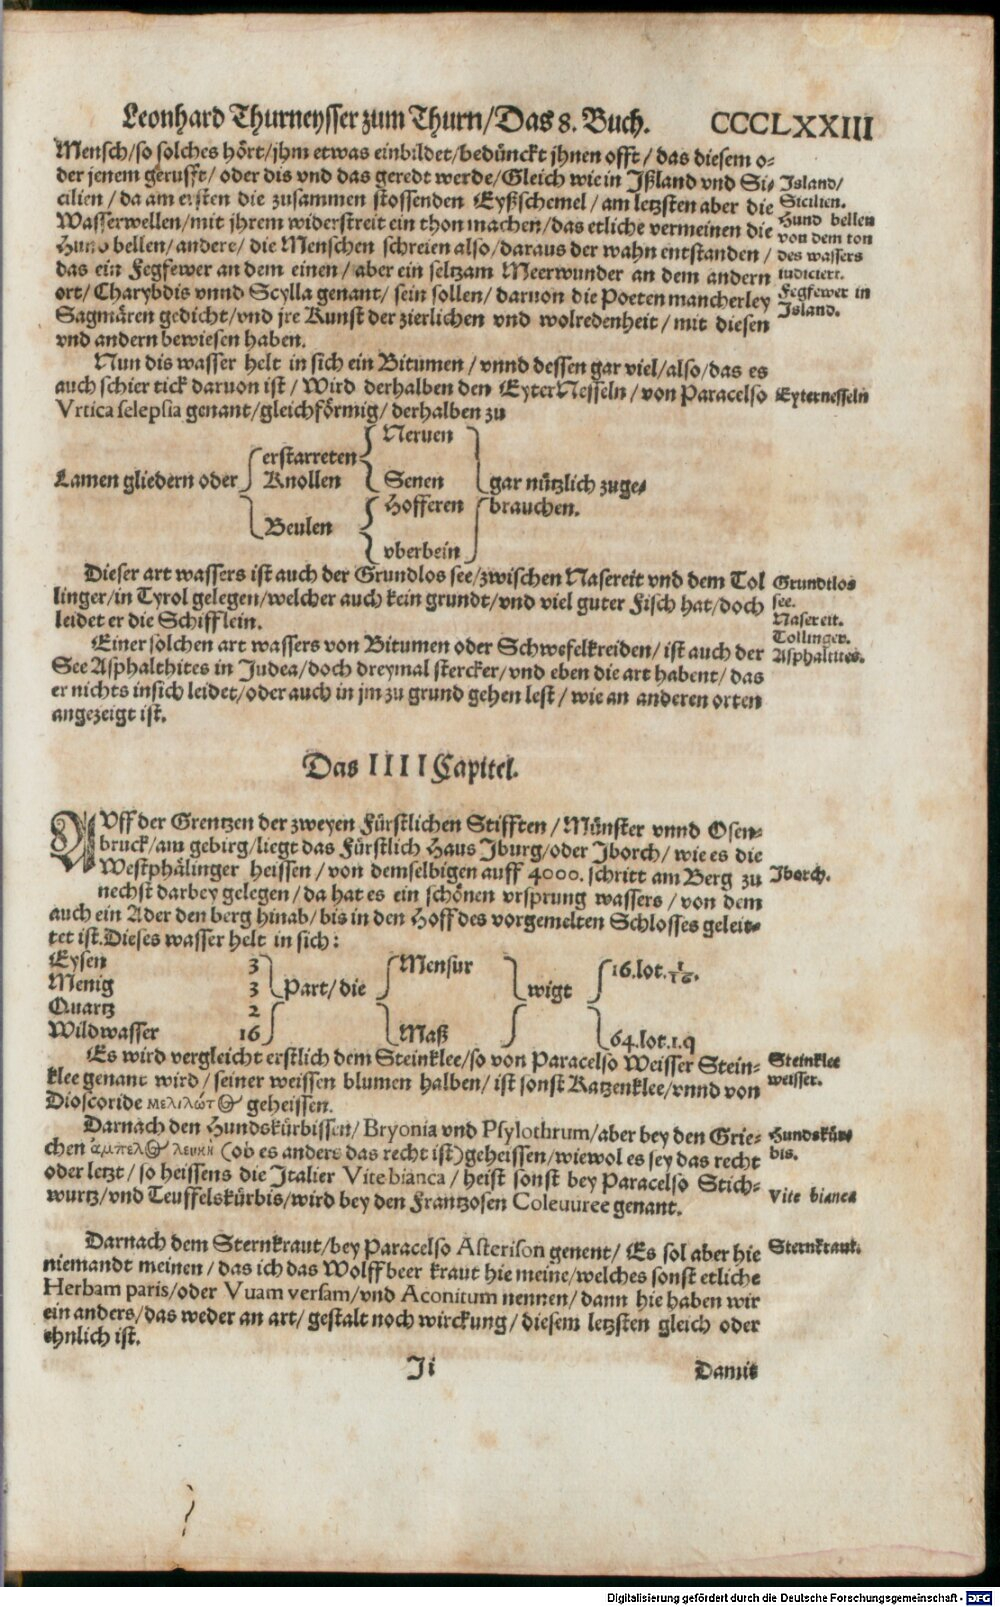 Leonhard Thurneysser zum Thurn/Das 8. Buch. CCCCLXXIII
Mensch/so solches hört/jhm etwas einbildet/bedünckt jhnen offt/ das diesem o=
der jenem gerufft/ oder dis vnd das geredt werde/Gleich wie in Ißland vnd Si=
cilien / da am ersten die zusammen stossenden Eyßschemel / am letzsten aber die
Wasserwellen/mit jhrem widerstreit ein thon machen/das etliche vermeinen die
Hund bellen/andere/ die Menschen schreien also/daraus der wahn entstanden /
das ein Fegfewer an dem einen / aber ein seltzam Meerwunder an dem andern
ort/ Charybdis vnnd Scylla genant/ sein sollen/ daruon die Poeten mancherley
Sagmären gedicht/vnd jre Kunst der zierlichen vnd wolredenheit / mit diesen
vnd andern bewiesen haben.
Island/
Sicilien.
Hund bellen
von dem ton
des wassers
iudiciert.
Fegfewer in
Island.
Nun dis wasser helt in sich ein Bitumen / vnnd dessen gar viel/also/das es
auch schier tick daruon ist / Wird derhalben den EyterNesseln / von Paracelso
Vrtica selepsia genant/gleichförmig/ derhalben zu
Eyternesseln
Lamen gliedern oder
erstarreten
Knollen
Beulen
Neruen
Senen
Hofferen
vberbein
gar nützlich zuge=
brauchen.
Dieser art wassers ist auch der Grundlos see/zwischen Nasereit vnd dem Tol
linger/in Tyrol gelegen/welcher auch kein grundt/vnd viel guter Fisch hat/doch
leidet er die Schifflein.
Einer solchen art wassers von Bitumen oder Schwefelkreiden/ ist auch der
See Asphalthites in Judea/doch dreymal stercker/vnd eben die art habent/ das
er nichts in sich leidet/oder auch in jm zu grund gehen lest / wie an anderen orten
angezeigt ist.
Grundtlos
see.
Nasereit.
Tollinger.
Asphaltites.
Das IIII Capitel.
AVff der Grentzen der zweyen Fürstlichen Stifften / Münster vnnd Osen=
bruck/am gebirg/liegt das Fürstlich Haus Jburg/oder Jborch/ wie es die
Westphälinger heissen / von demselbigen auff 4000. schritt am Berg zu
nechst darbey gelegen / da hat es ein schönen vrsprung wassers / von dem
auch ein Ader den berg hinab/ bis in den Hoff des vorgemelten Schlosses geleit=
tet ist. Dieses wasser helt in sich:
Jborch.
Eysen 3
Menig 3
Quartz 2
Wildwasser 16
Part/ die
Mensur
Maß
wigt
16. lot. 1/16.
64. lot. 1. q
Es wird vergleicht erstlich dem Steinklee/so von Paracelso Weisser Stein=
klee genant wird / seiner weissen blumen halben / ist sonst Katzenklee/vnnd von
Dioscoride μελιλώτος geheissen.
Steinklee
weisser.
Darnach den Hundskürbissen/ Bryonia vnd Psylothrum/aber bey den Grie=
chen ἀμπελος λευκὴ (ob es anders das recht ist) geheissen/wiewol es sey das recht
oder letzt / so heissens die Italier Vite bianca / heist sonst bey Paracelso Stich=
wurtz/vnd Teuffelskürbis/wird bey den Frantzosen Coleuuree genant.
Hundskür=
bis.
Vite bianca
Darnach dem Sternkraut/bey Paracelso Asterison genent/ Es sol aber hie
niemandt meinen / das ich das Wolffbeer kraut hie meine/welches sonst etliche
Herbam paris/oder Vuam versam/vnd Aconitum nennen/ dann hie haben wir
ein anders/das weder an art/ gestalt noch wirckung / diesem letzsten gleich oder
ehnlich ist.
Sternkraut.
Ji Damit
Digitalisierung gefördert durch die Deutsche Forschungsgemeinschaft - DFG